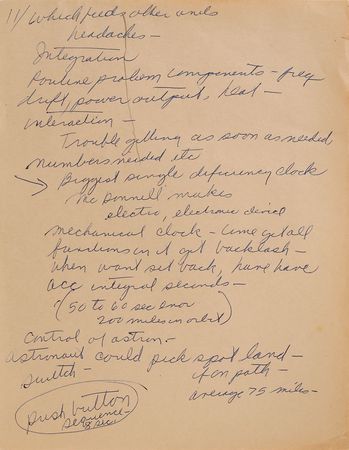 11/ which feeds other units
headaches —
Integration
Routine problem components — freq
drift, power output, heat —
interaction —
Trouble getting as soon as needed
numbers needed etc
→ Biggest single deficiency clock
McDonnell makes
electric, electronic
mechanical clock — time get all
functions in it get backlash —
when want set back, have have
acc integral seconds —
(50 to 60 sec error
200 miles in orbit)
Control of astron —
astronaut could pick spot land —
switch — if on path —
average 75 miles —
push button
sequence —
8 sec.